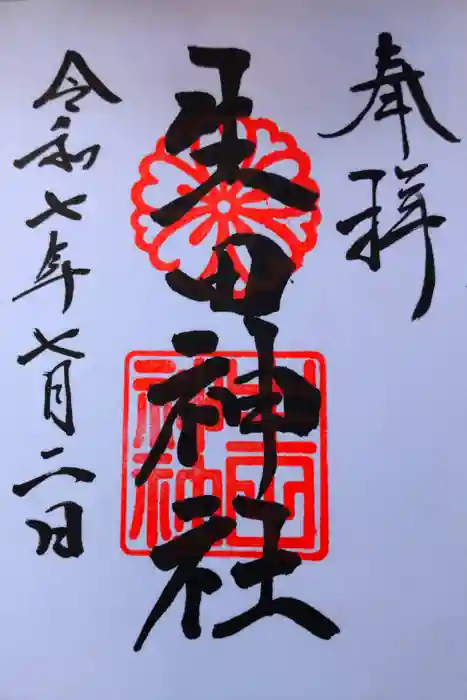 奉拝
矢田神社
令和七年七月二日